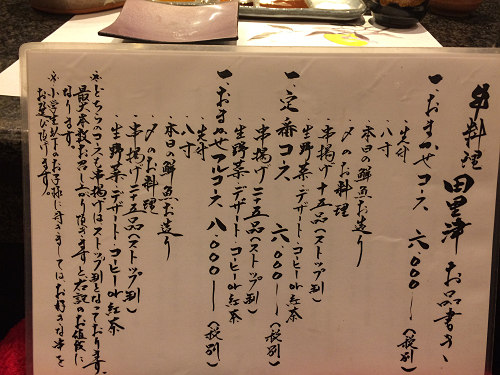 串料理 田里津 お品書き
一、おまかせコース 六、000ー(税別)
・先寸
・八寸
・本日の鮮魚お造り
・〆のお料理
・串揚げ二十五品(ストップ制)
・生野菜・デザート・コーヒーor紅茶
一、定番コース 六、000ー(税別)
・串揚げ二十五品(ストップ制)
・生野菜・デザート・コーヒーor紅茶
一、おまかせフルコース 八、000ー(税別)
・先寸
・八寸
・本日の鮮魚お造り
・〆のお料理
・串揚げ二十五品(ストップ制)
・生野菜・デザート・コーヒーor紅茶
※どちらのコースも串揚げはストップ制となっております。
最大本数お召し上がり頂きますと右記のお値段に
なります。
※小学生以下のお子様に付きましてはお好きな串を
お選び頂けます。